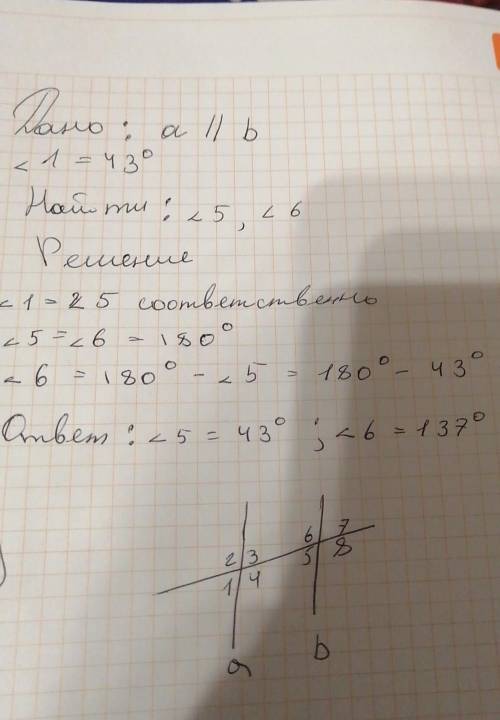 Дано: a // b
∠1 = 43°
Найти: ∠5, ∠6
Решение
∠1 = ∠5 соответственно
∠5 = ∠6 = 180°
∠6 = 180° - ∠5 = 180° - 43°
Ответ: ∠5 = 43°; ∠6 = 137°
6 7
2 3 5 8
1 4
a b